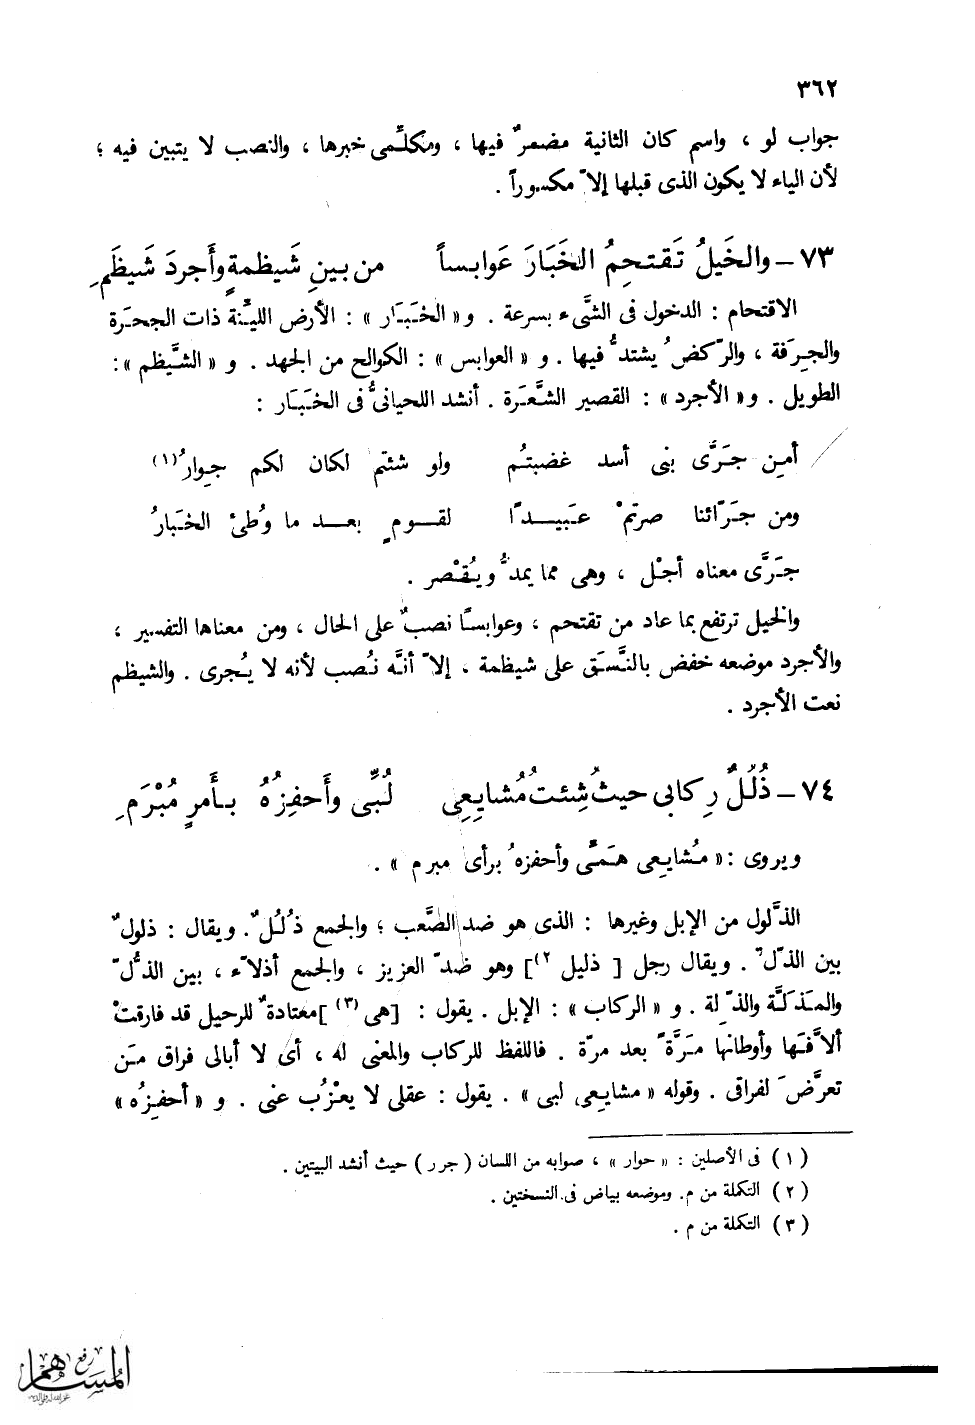 ٣٦٢
جواب لو ، واسم كان الثانية مضمرٌ فيها ، ومكلِّمى خبرها ، والنصب لا يتبين فيه ؛
لأن الياء لا يكون الذى قبلها إلاّ مكسوراً .
٧٣ – والخَيلُ تَقتحِمُ الخَبَارَ عَوابساً من بينِ شَيظمةٍ وأَجردَ شَيظَمِ
الاقتحام : الدخول فى الشَّىء بسرعة . و« الخَبَار » : الأرض الليِّنة ذات الجِحَرة
والجِرَفة ، والرّكضُ يشتدُّ فيها . و « العوابس » : الكوالح من الجهد . و « الشَّيظم » :
الطويل . و« الأجرد » : القصير الشَّعَرة . أنشد اللحيانىُّ فى الخَبَار :
أمِن جَرَّى بنى أسد غضبتُم ولو شئتم لكان لكم جِوارُ(١)
ومن جَرّائنا صرتمْ عَبيدًا لقومٍ بعد ما وُطئ الخَبارُ
جَرَّى معناه أجْل ، وهى مما يمدُّ ويُقْصر .
والخيل ترتفع بما عاد من تقتحم ، وعوابسًا نصبٌ على الحال ، ومن معناها التفسير ،
والأجرد موضعه خفض بالنَّسَق على شيظمة ، إلاّ أنَّه نُصب لأنه لا يُجرى . والشيظم
نعت الأجرد .
٧٤ – ذُلُلٌ رِكابى حيثُ شِئتُ مُشايِعِى لُبِّى وأَحفِزُهُ بأَمرٍ مُبْرَمِ
ويروى : « مُشايعى هَمِّى وأحفزهُ برأى مبرم » .
الذَّلول من الإبل وغيرها : الذى هو ضد الصَّعب ؛ والجمع ذُلُلٌ . ويقال : ذلولٌ
بين الذّلّ . ويقال رجل [ ذليل (٢)] وهو ضدّ العزيز ، والجمع أذلاّء ، بين الذُّلّ
والمَذَلَّة والذِّلة . و « الركاب » : الإبل . يقول : [هى (٣)] معتادةٌ للرحيل قد فارقتْ
ألاَّفَها وأوطانها مَرَّةً بعد مرّة . فاللفظ للركاب والمعنى له ، أى لا أبالى فراق مَن
تعرَّضَ لفراقى . وقوله « مشايعى لبى » . يقول : عقلى لا يعزُب عنى . و « أحفِزُه »
(١) فى الأصلين : « حوار » ، صوابه من اللسان ( جرر ) حيث أنشد البيتين .
(٢) التكملة من م. وموضعه بياض فى النسختين .
(٣) التكملة من م .
رفع
المساهم